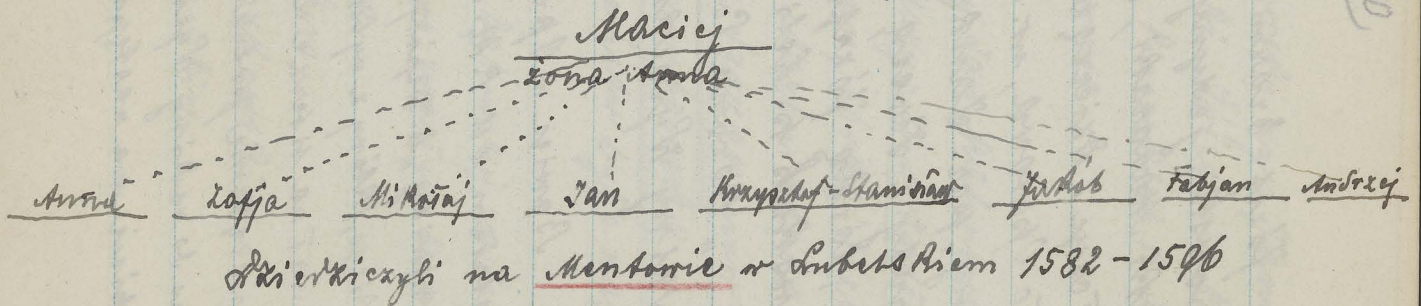 Maciej
żona Anna
Anna Zofja Mikołaj Jan Krzysztof-Stanisław Jakób Fabjan Andrzej
dziedziczyli na Mentowie w Lubelskiem 1582-1596